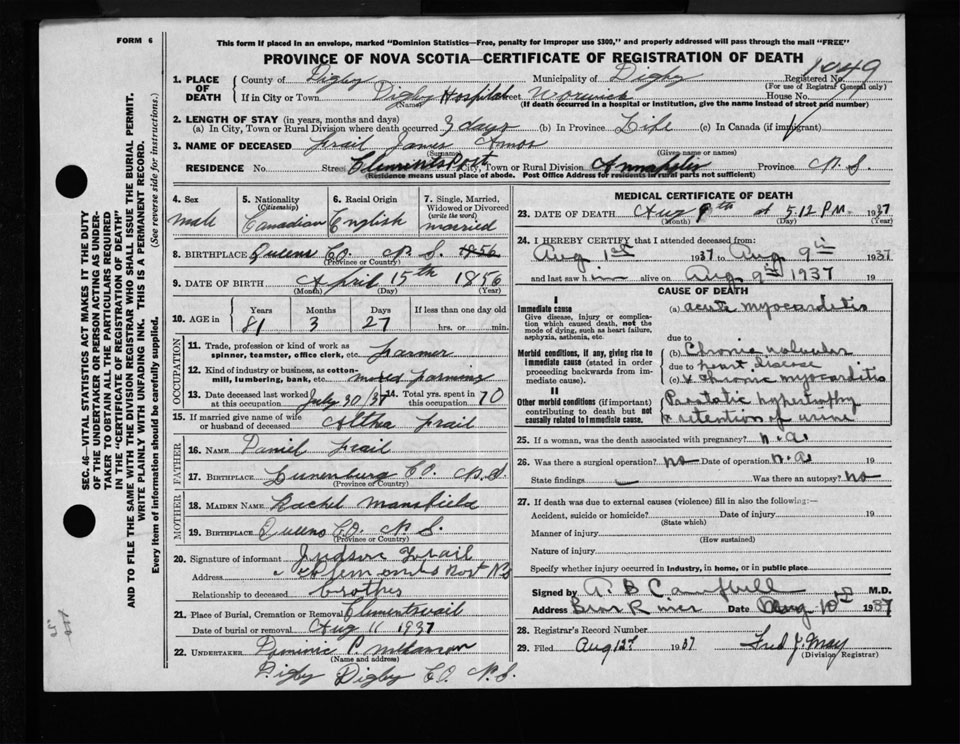 FORM 6
This form if placed in an envelope, marked "Dominion Statistics—Free, penalty for improper use $300," and properly addressed will pass through the mail "FREE"
PROVINCE OF NOVA SCOTIA—CERTIFICATE OF REGISTRATION OF DEATH
1. PLACE OF DEATH
County of Digby Municipality of Digby Registered No. 1049
(For use of Registrar General only)
If in City or Town Digby Hospital Street Warwick House No.
(Name) (If death occurred in a hospital or institution, give the name instead of street and number)
2. LENGTH OF STAY (in years, months and days)
(a) In City, Town or Rural Division where death occurred 9 days (b) In Province Life (c) In Canada (if immigrant)
3. NAME OF DECEASED Frail James Amos
(Surname) (Given name or names)
RESIDENCE No. Street Clementsport City, Town or Rural Division Annapolis Province N. S.
(Residence means usual place of abode. Post Office Address for residents in rural parts not sufficient)
4. Sex
male
5. Nationality (Citizenship)
Canadian
6. Racial Origin
English
7. Single, Married, Widowed or Divorced (write the word)
married
8. BIRTHPLACE Queens CO. N. S. 1856
(Province or Country)
9. DATE OF BIRTH April 15th 1856
(Month) (Day) (Year)
10. AGE in Years Months Days If less than one day old
81 3 27 hrs. or min.
OCCUPATION
11. Trade, profession or kind of work as spinner, teamster, office clerk, etc. Farmer
12. Kind of industry or business, as cotton-mill, lumbering, bank, etc. mixed farming
13. Date deceased last worked at this occupation July 30/37 14. Total yrs. spent in this occupation 70
15. If married give name of wife or husband of deceased Althea Frail
FATHER
16. NAME Daniel Frail
17. BIRTHPLACE Lunenburg CO. N. S.
(Province or Country)
MOTHER
18. MAIDEN NAME Rachel Mansfield
19. BIRTHPLACE Queens CO. N. S.
(Province or Country)
20. Signature of informant Judson Frail
Address Clementsport NS
Relationship to deceased brother
21. Place of Burial, Cremation or Removal Clementsvail
Date of burial or removal Aug 11 1937
22. UNDERTAKER Dominic P.
(Name and address)
Digby Digby CO. N. S.
MEDICAL CERTIFICATE OF DEATH
23. DATE OF DEATH Aug 9th at 5.12 P.M. 1937
(Month) (Day) (Year)
24. I HEREBY CERTIFY that I attended deceased from:
Aug 1st 1937 to Aug 9th 1937
and last saw him alive on Aug 9th 1937 19
CAUSE OF DEATH
I
Immediate cause
Give disease, injury or complication which caused death, not the mode of dying, such as heart failure, asphyxia, asthenia, etc.
(a) acute myocarditis
due to
Morbid conditions, if any, giving rise to immediate cause (stated in order proceeding backwards from immediate cause).
(b) Chronic valvular
due to heart disease
(c) & chronic myocarditis
II
Other morbid conditions (if important) contributing to death but not causally related to immediate cause.
Prostatic hypertrophy
& retention of urine
25. If a woman, was the death associated with pregnancy? n.a.
26. Was there a surgical operation? no Date of operation n.a. 19
State findings Was there an autopsy? no
27. If death was due to external causes (violence) fill in also the following:—
Accident, suicide or homicide? Date of injury 19
(State which)
Manner of injury
(How sustained)
Nature of injury
Specify whether injury occurred in industry, in home, or in public place
Signed by A. B. Campbell M.D.
Address Bear River Date Aug 10th 1937
28. Registrar's Record Number
29. Filed Aug 12th 1937 Fred J. May
(Division Registrar)
SEC. 46—VITAL STATISTICS ACT MAKES IT THE DUTY
OF THE UNDERTAKER OR PERSON ACTING AS UNDER-
TAKER TO OBTAIN ALL THE PARTICULARS REQUIRED
IN THE "CERTIFICATE OF REGISTRATION OF DEATH"
AND TO FILE THE SAME WITH THE DIVISION REGISTRAR WHO SHALL ISSUE THE BURIAL PERMIT.
WRITE PLAINLY WITH UNFADING INK. THIS IS A PERMANENT RECORD.
Every item of information should be carefully supplied. (See reverse side for instructions.)